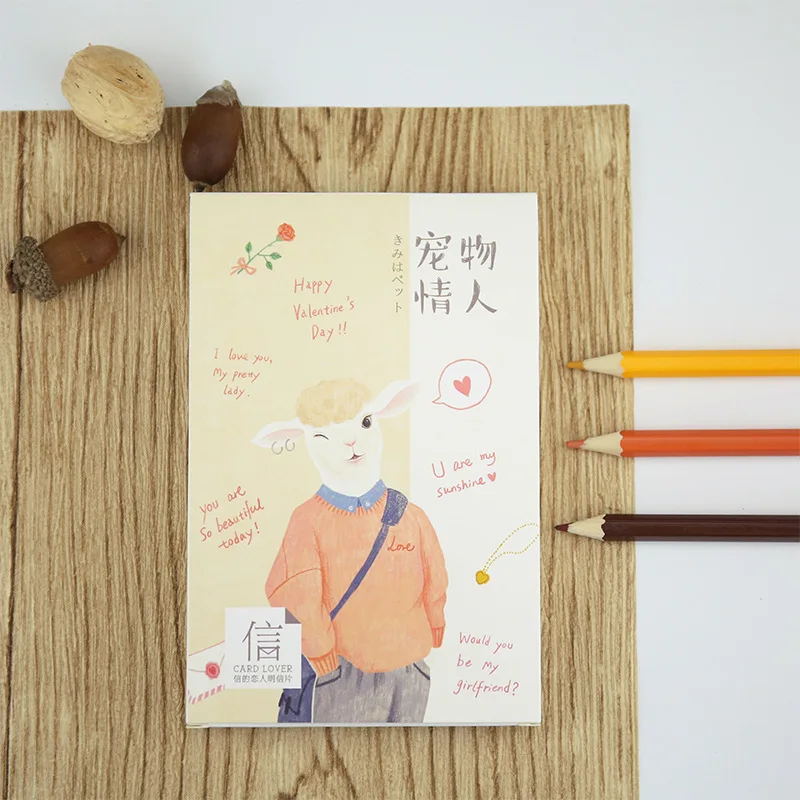 宠物
情人
きみはペット
Happy
Valentine's
Day!!
I love you,
My pretty
lady.
U are my
sunshine
you are
So beautiful
today!
Love
Would you
be my
girlfriend?
信
CARD LOVER
信的恋人明信片